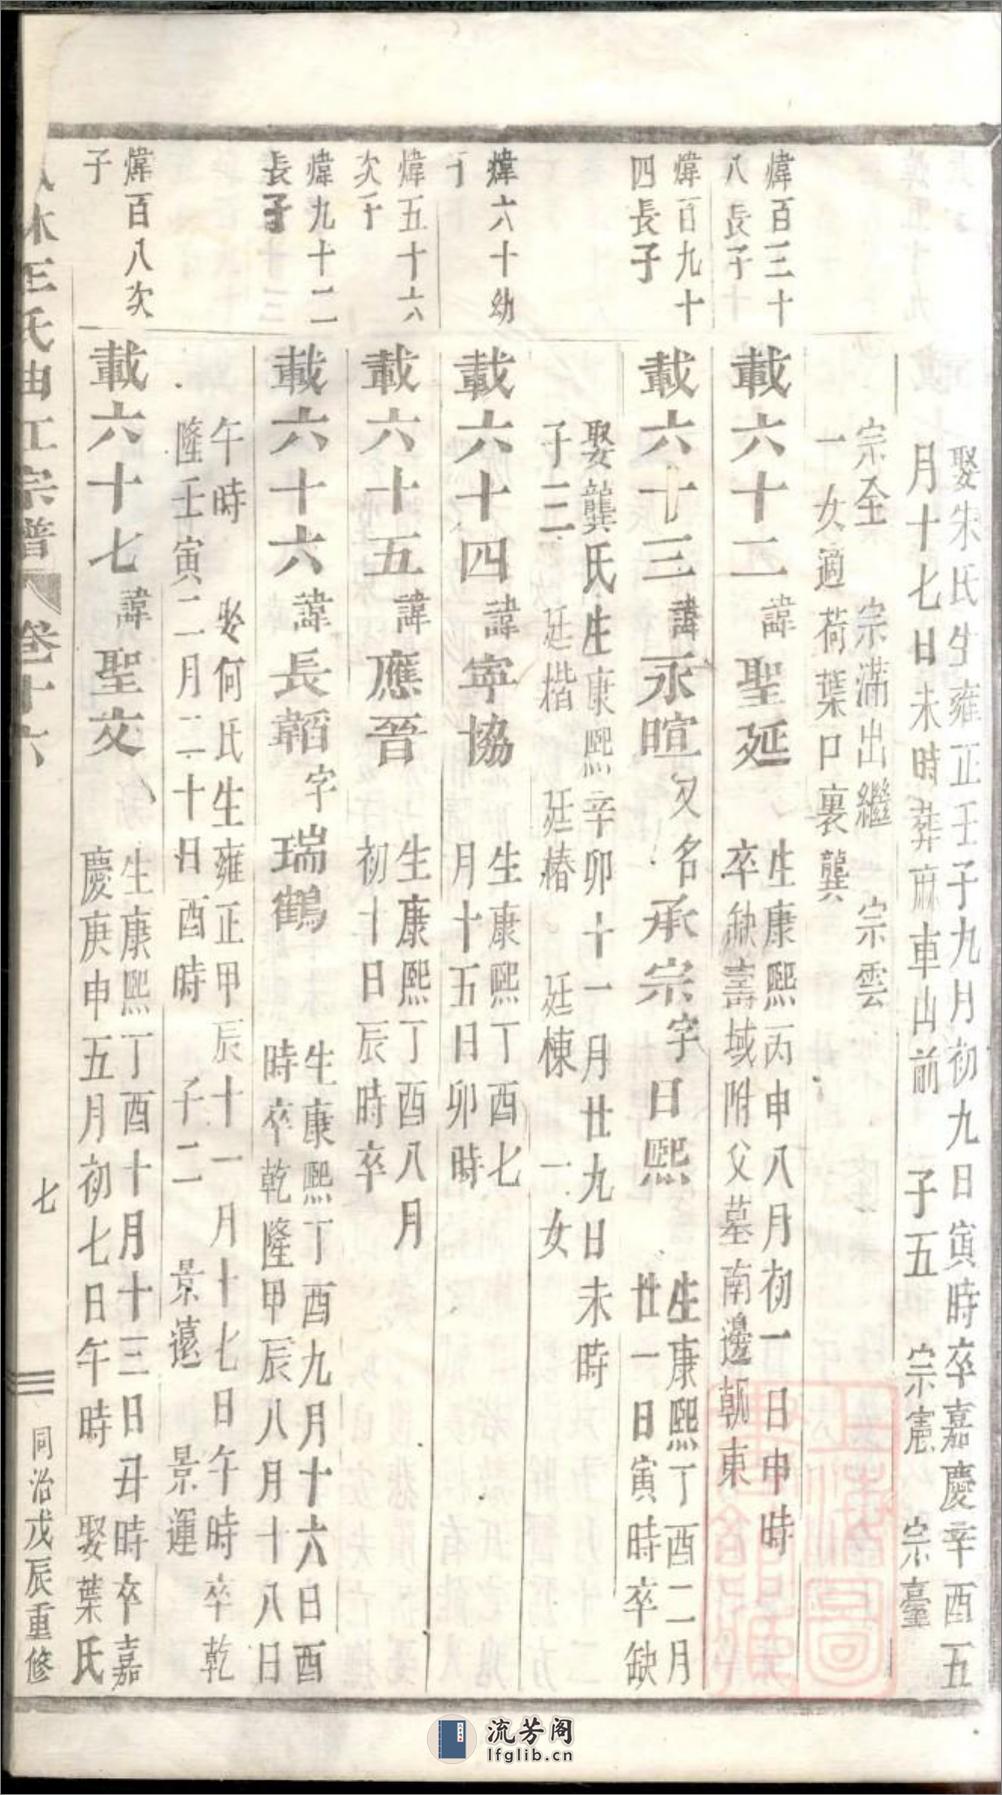 娶朱氏生雍正壬子九月初九日寅時卒嘉慶辛酉五
月十七日未時葬麻車山前　子五　宗憲　宗臺
宗全　宗滿出繼　宗雲
一女適荷葉口裏龔
煒百三十
八長子
載六十二諱聖延
生康熙丙申八月初一日申時
卒缺壽域附父墓南邊朝東
煒百九十
四長子
載六十三諱永暄又名承宗字日熙
生康熙丁酉二月
廿一日寅時卒缺
娶龔氏生康熙辛卯十一月廿九日未時
子三　廷楷　廷椿　廷棟　一女
煒六十幼
子
載六十四諱寧協
生康熙丁酉七
月十五日卯時
煒五十六
次子
載六十五諱應晉
生康熙丁酉八月
初十日辰時卒
煒九十二
長子
載六十六諱長韜字瑞鶴
生康熙丁酉九月十六日酉
時卒乾隆甲辰八月十八日
午時　娶何氏生雍正甲辰十一月十七日午時卒乾
隆壬寅二月二十日酉時　子二　景蘧　景運
煒百八次
子
載六十七諱聖文
生康熙丁酉十月十三日丑時卒嘉
慶庚申五月初七日午時　娶葉氏
林王氏曲江宗譜　卷十六
七
同治戊辰重修
流芳阁
lfglib.cn